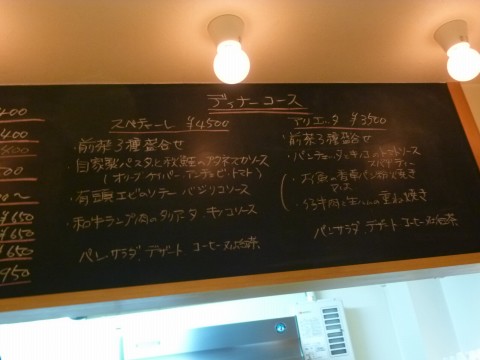 400
400
400
500
¥650
¥650
¥650
950
ディナーコース
スペチャーレ ¥4500
・前菜3種盛合せ
・自家製パスタと秋鮭のプッタネスカソース
(オリーブ・ケイパー・アンチョビ・トマト)
・有頭エビのソテー バジリコソース
・和牛ランプ肉のタリアータ キノコソース
パン、サラダ、デザート コーヒー又は紅茶
アリエッタ ¥3500
・前菜3種盛合せ
・パンチェッタとキノコのトマトソース
スパゲティー
・の香草パン粉焼き
・仔牛肉と生ハムの重ね焼き
パン、サラダ、デザート コーヒー又は紅茶